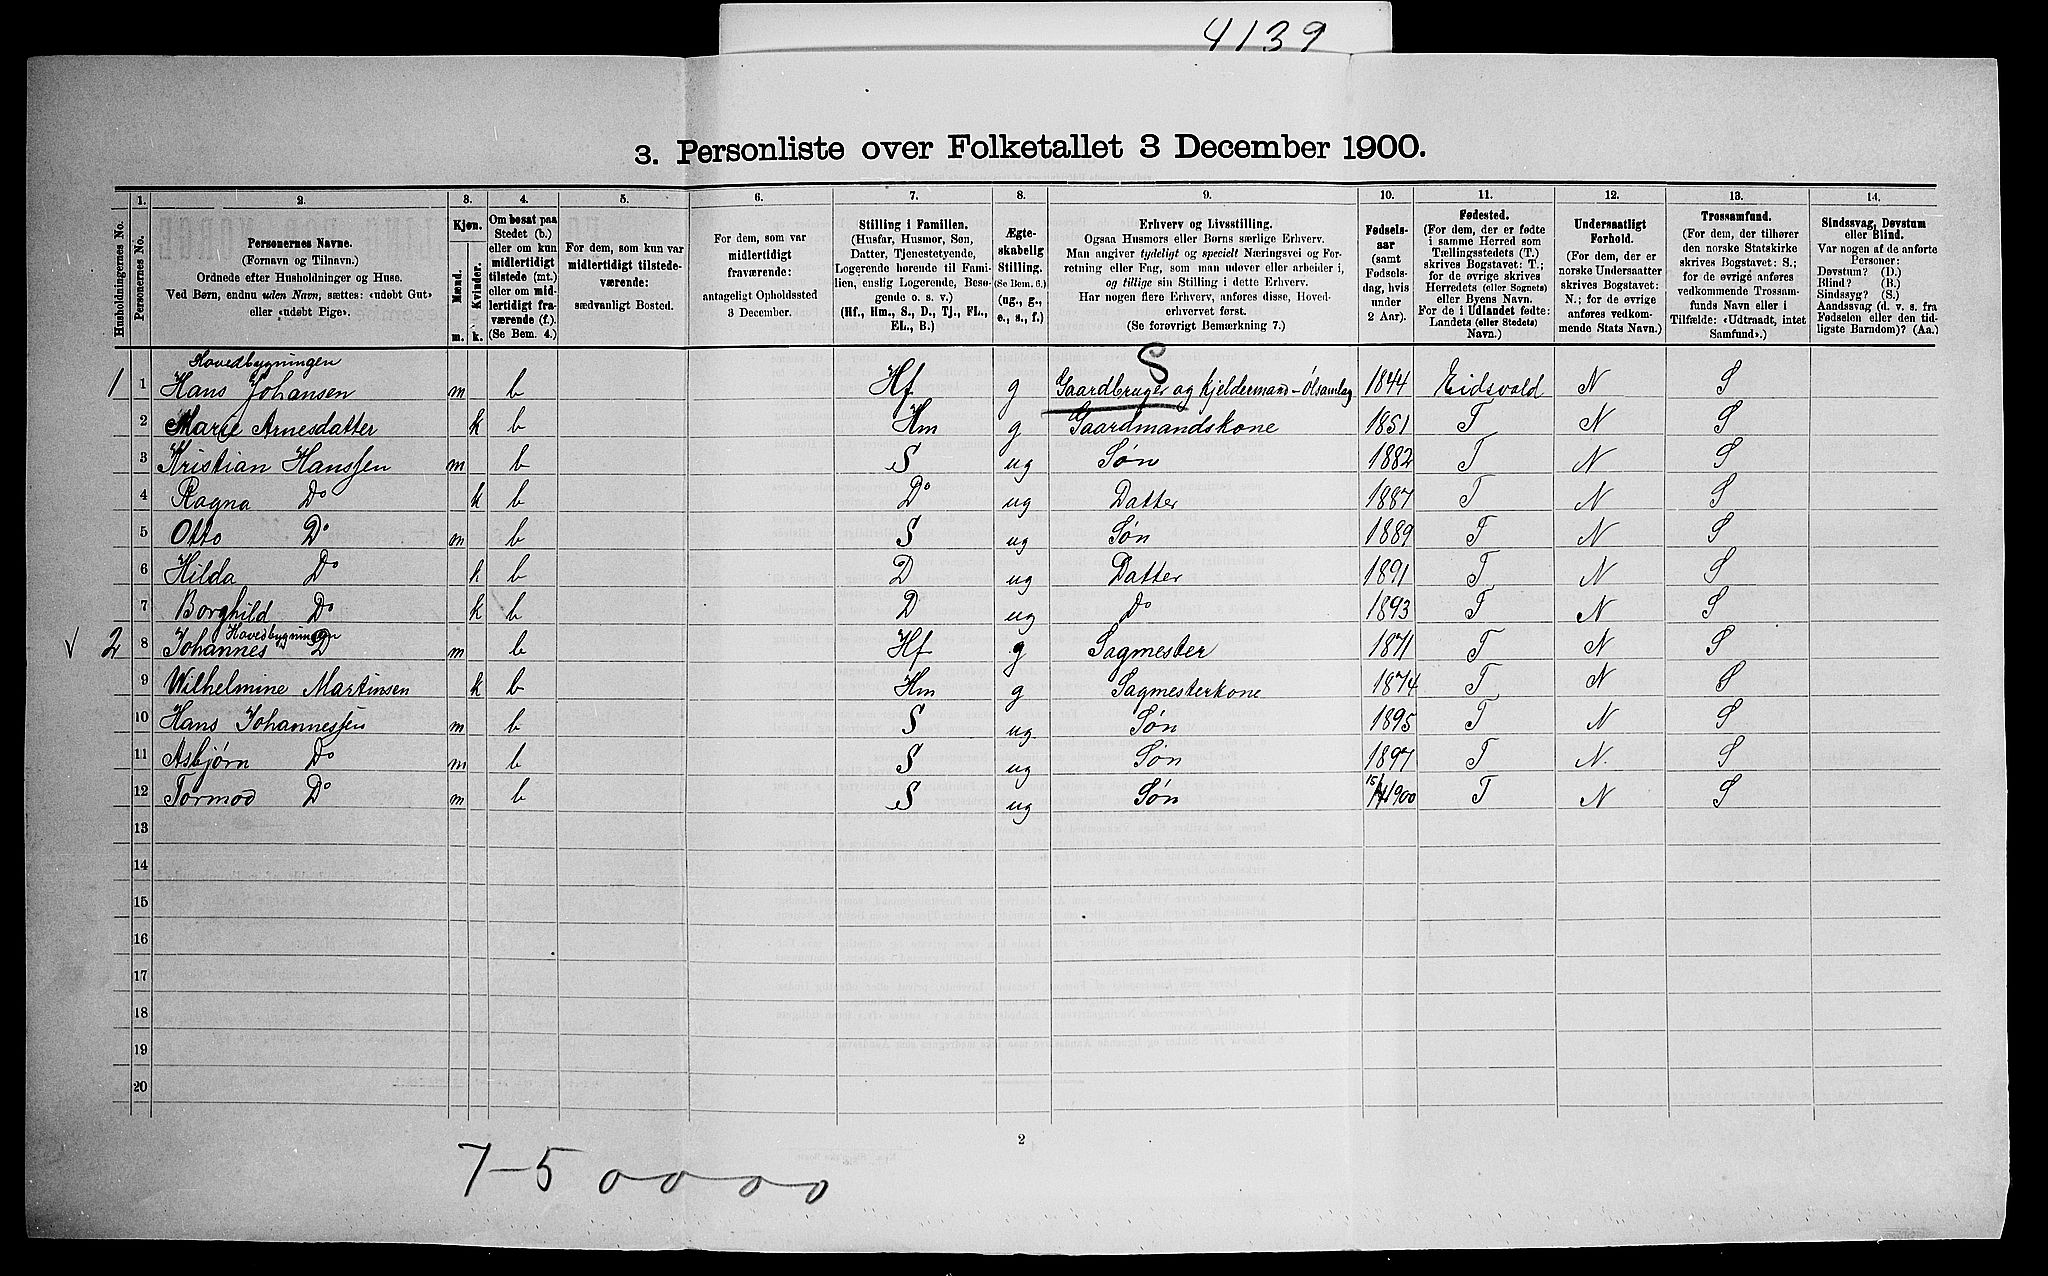 4139
3. Personliste over Folketallet 3 December 1900.
Husholdningernes No.
1. Personernes No.
2. Personernes Navne. (Fornavn og Tilnavn.) Ordnede efter Husholdninger og Huse. Ved Børn, endnu uden Navn, sættes: «udøbt Gut» eller «udøbt Pige».
3. Kjøn. Mænd. m. Kvinder. k.
4. Om bosat paa Stedet (b.) eller om kun midlertidigt tilstede (mt.) eller om midlertidigt fraværende (f.). (Se Bem. 4.)
5. For dem, som kun var midlertidigt tilstedeværende: sædvanligt Bosted.
6. For dem, som var midlertidigt fraværende: antageligt Opholdssted 3 December.
7. Stilling i Familien. (Husfar, Husmor, Søn, Datter, Tjenestetyende, Logerende hørende til Familien, enslig Logerende, Besøgende o. s. v.) (Hf., Hm., S., D., Tj., FL., EL., B.)
8. Ægteskabelig Stilling. (Se Bem. 6.) (ug., g., e., s., f.)
9. Erhverv og Livsstilling. Ogsaa Husmors eller Børns særlige Erhverv. Man angiver tydeligt og specielt Næringsvei og Forretning eller Fag, som man udøver eller arbeider i, og tillige sin Stilling i dette Erhverv. Har nogen flere Erhverv, anføres disse, Hovederhvervet først. (Se forøvrigt Bemærkning 7.)
10. Fødselsaar (samt Fødselsdag, hvis under 2 Aar).
11. Fødested. (For dem, der er fødte i samme Herred som Tællingsstedets (T.) skrives Bogstavet: T.; for de øvrige skrives Herredets (eller Sognets) eller Byens Navn. For de i Udlandet fødte: Landets (eller Stedets) Navn.)
12. Undersaatligt Forhold. (For dem, der er norske Undersaatter skrives Bogstavet: N.; for de øvrige anføres vedkommende Stats Navn.)
13. Trossamfund. (For dem, der tilhører den norske Statskirke skrives Bogstavet: S.; for de øvrige anføres vedkommende Trossamfunds Navn eller i Tilfælde: «Udtraadt, intet Samfund».)
14. Sindssvag, Døvstum eller Blind. Var nogen af de anførte Personer: Døvstum? (D.) Blind? (B.) Sindssyg? (S.) Aandssvag (d. v. s. fra Fødselen eller den tidligste Barndom)? (Aa.)
Hovedbygningen S
1 1 Hans Johansen m b Hf g Gaardbruger og kjeldermand - Ølsamlag 1844 Eidsvold N S
2 Marie Arnesdatter k b Hm g Gaardmandskone 1851 T N S
3 Kristian Hanssen m b S ug Søn 1882 T N S
4 Ragna Do k b Do ug Datter 1887 T N S
5 Otto Do m b S ug Søn 1889 T N S
6 Hilda Do k b D ug Datter 1891 T N S
7 Borghild Do k b D ug Do 1893 T N S
Hovedbygningen
√ 2 8 Johannes Do m b Hf g Sagmester 1871 T N S
9 Wilhelmine Martinsen k b Hm g Sagmesterkone 1874 T N S
10 Hans Johannessen m b S ug Søn 1895 T N S
11 Asbjørn Do m b S ug Søn 1897 T N. S
12 Tormod Do m b S ug Søn 15/4 1900 T N S
13
14
15
16
17
18
19
20
2
7-5 0000